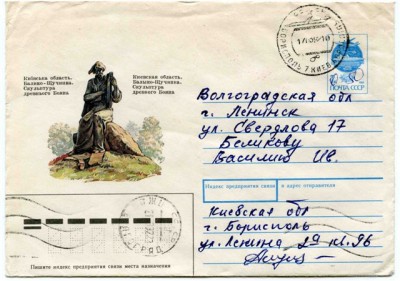 Київська область.
Балико-Щучинка.
Скульптура
древнього Бояна
Киевская область.
Балыко-Щучинка.
Скульптура
древнего Бояна
ПОЧТА СССР
Волгоградская обл
г. Ленинск
ул. Свердлова 17
Беликову
Василию Ив.
Индекс предприятия связи и адрес отправителя
Киевская обл
г. Борисполь
ул. Ленина
Пишите индекс предприятия связи места назначения